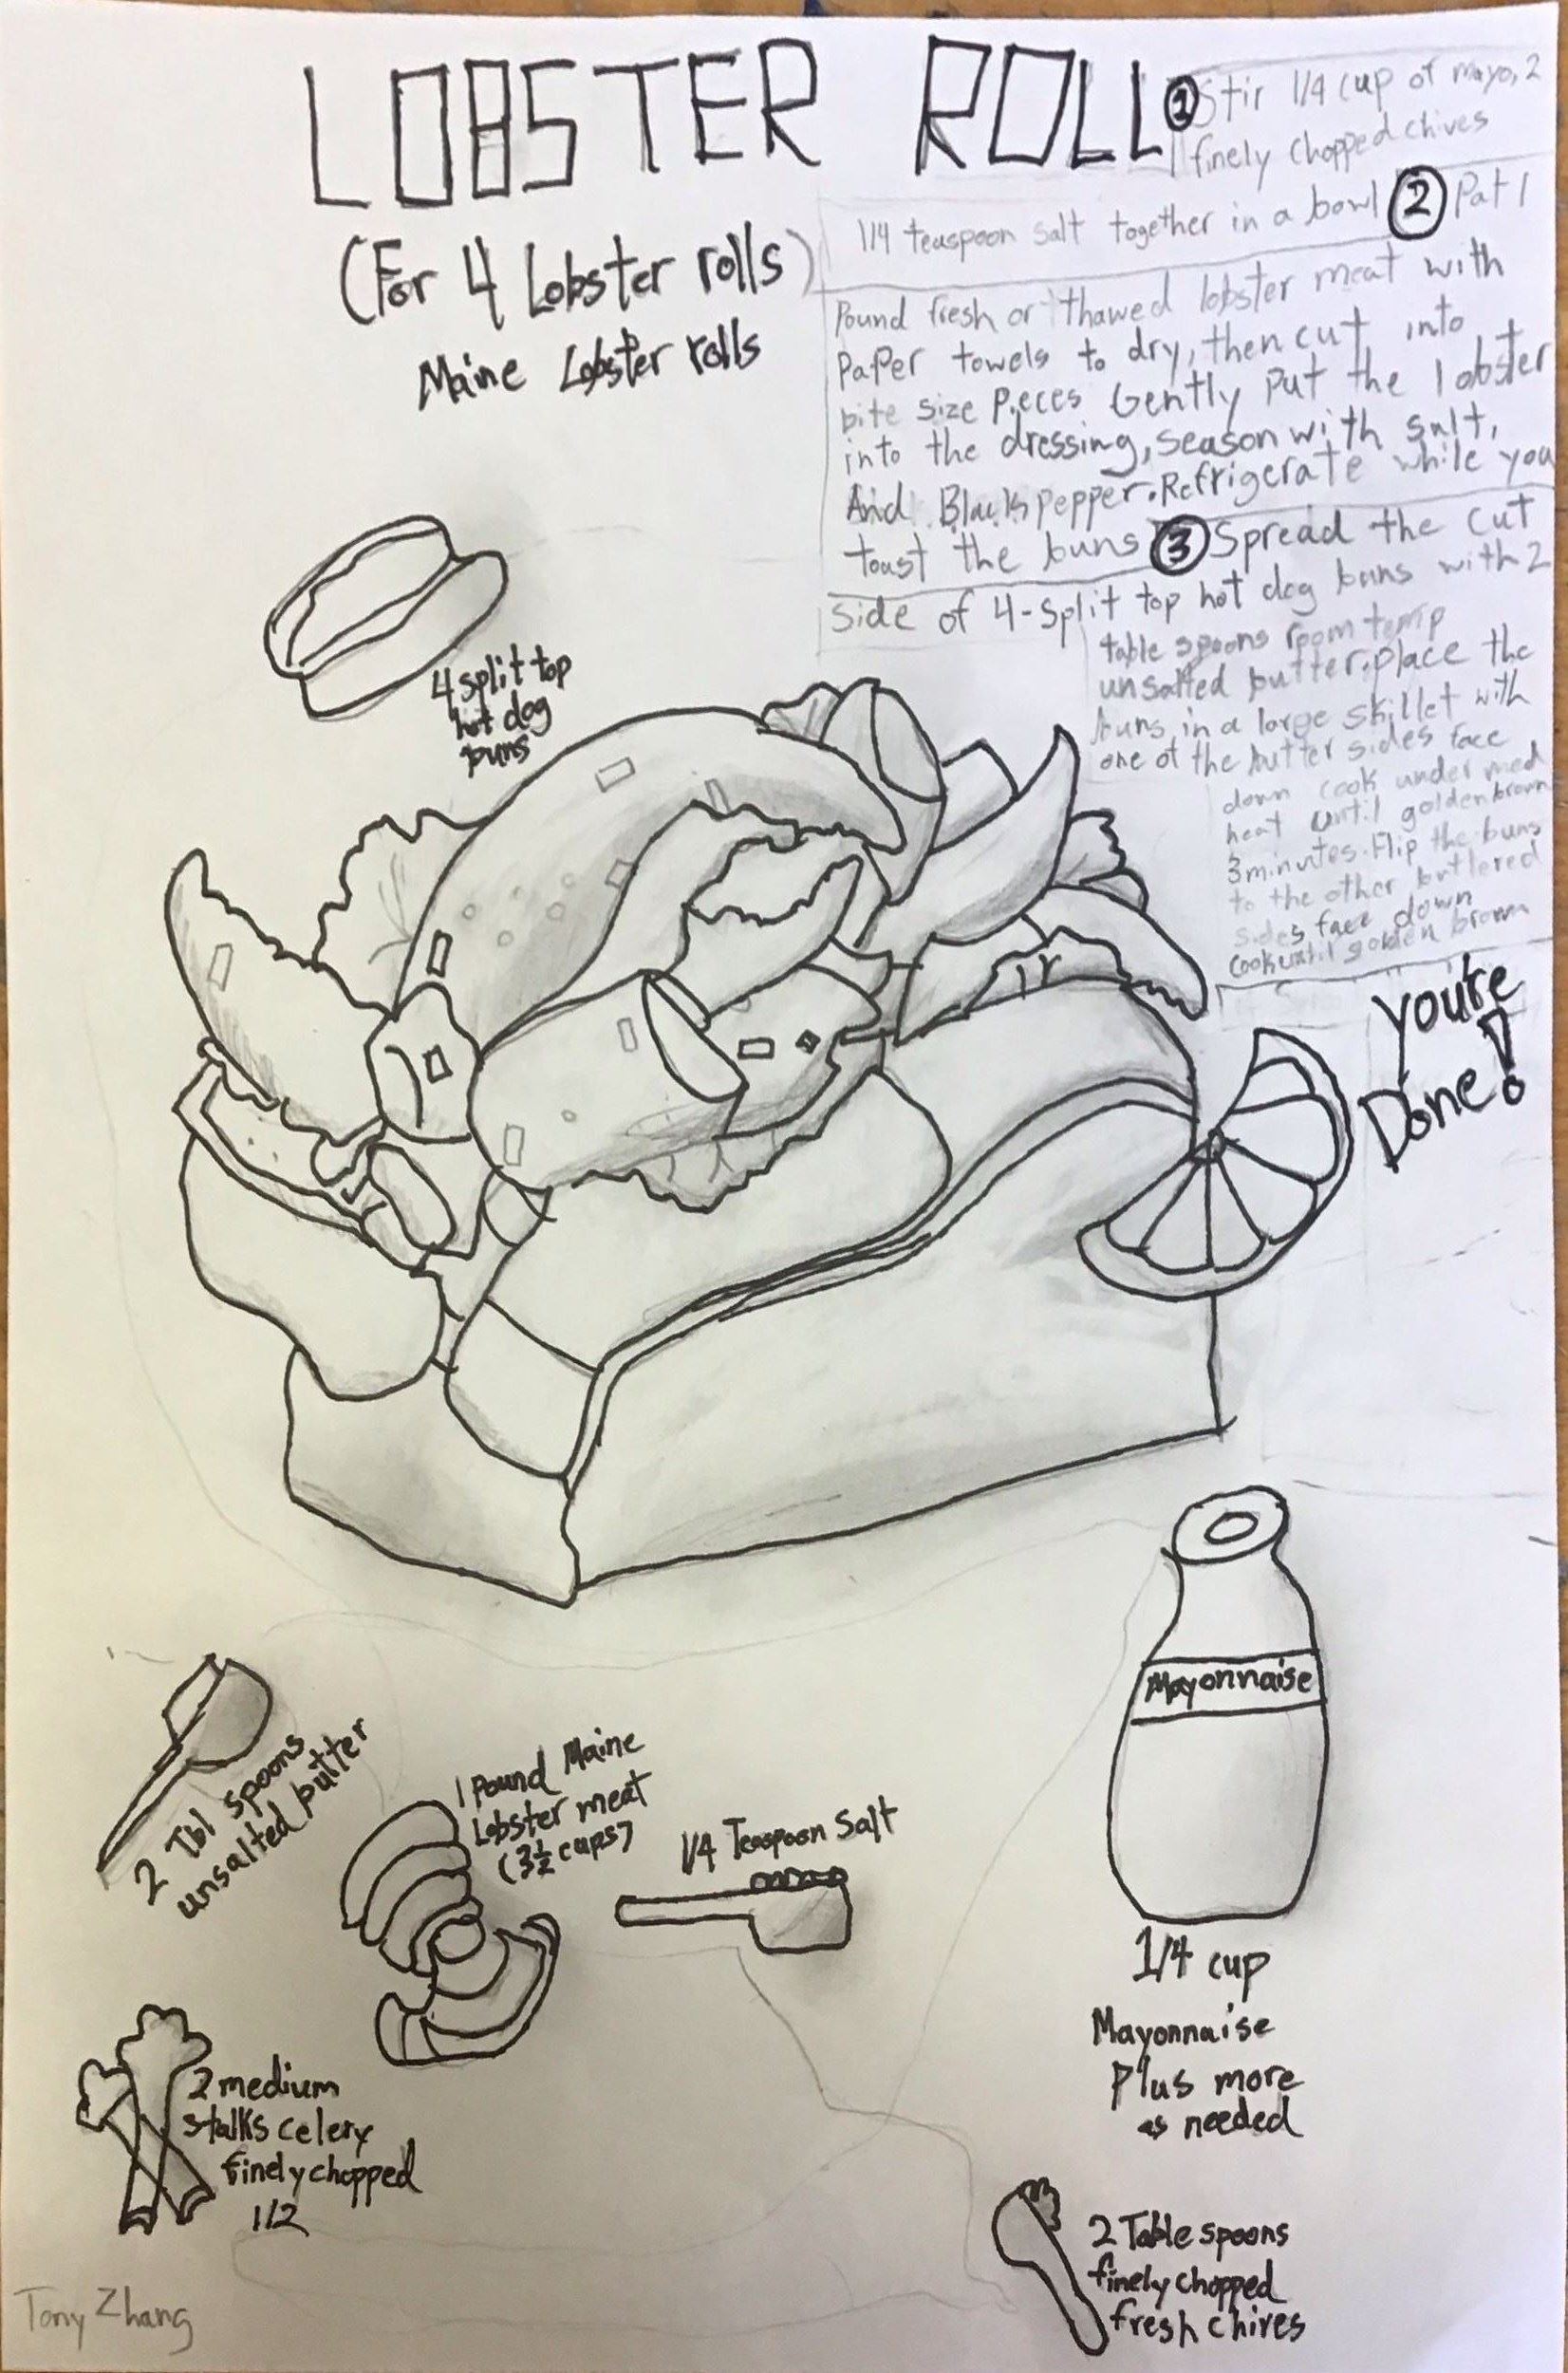 LOBSTER ROLL
(For 4 Lobster rolls)
Maine Lobster rolls
1 Stir 1/4 cup of mayo, 2
finely chopped chives
1/4 teaspoon salt together in a bowl 2 Pat 1
Pound fresh or thawed lobster meat with
Paper towels to dry, then cut into
bite size pieces Gently put the lobster
into the dressing, season with salt,
And Black pepper. Refrigerate while you
toast the buns 3 Spread the cut
Side of 4-split top hot dog buns with 2
table spoons room temp
unsalted butter. place the
buns in a large skillet with
one of the butter sides face
down cook under med
heat until golden brown
3 minutes. Flip the buns
to the other buttered
sides face down
cook until golden brown
you're
Done!
4 split top
hot dog
buns
Mayonnaise
1/4 cup
Mayonnaise
Plus more
as needed
2 Tbl spoons
unsalted butter
1 Pound Maine
Lobster meat
(3 1/2 cups)
1/4 Teaspoon Salt
2 medium
stalks celery
finely chopped
1/2
2 Table spoons
finely chopped
fresh chives
Tony Zhang